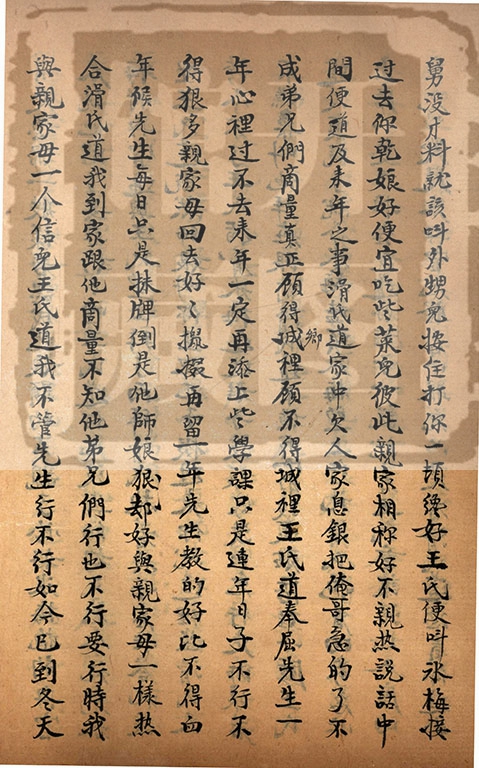 舅没才料就該叫外甥兒按住打你一頓纔好王氏便叫氷梅接
过去你乾娘好便宜吃些菜兒彼此親家相称好不親热説話中
間便道及来年之事滑氏道家中欠人家息銀把俺哥急的了不
成弟兄們商量真正顧得城鄉裡顧不得城裡王氏道奉屈先生一
年心裡过不去来年一定再添上些學課只是連年日子不行不
得狠多親家母回去好〻攛掇再留一年先生教的好比不得勾
年候先生每日只是抹牌倒是他師娘狠〻却好與親家母一様热
合滑氏道我到家跟他商量不知他弟兄們行也不行要行時我
與親家母一个信兒王氏道我不管先生行不行如今已到冬天